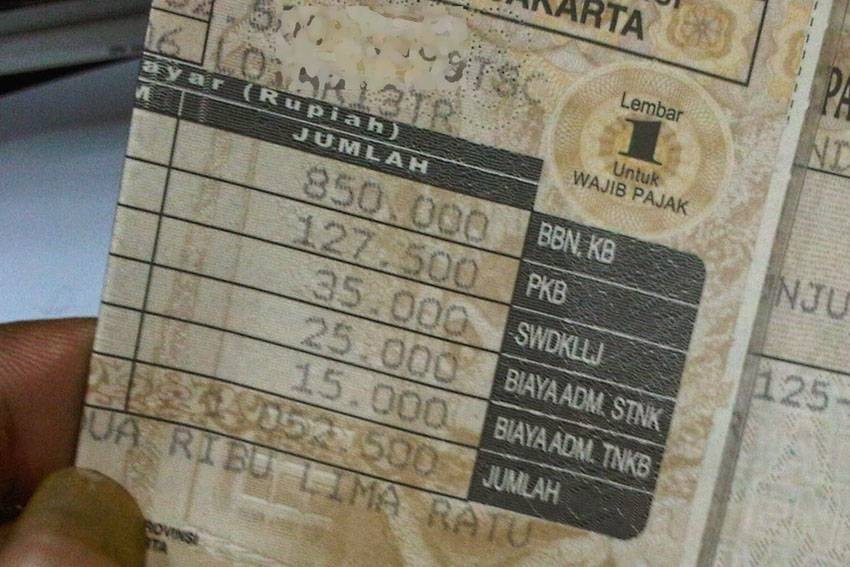 JAKARTA
Lembar
1
Untuk
WAJIB PAJAK
ayar (Rupiah)
JUMLAH
850.000 BBN, KB
127.500 PKB
35.000 SWDKLLJ
25.000 BIAYA ADM. STNK
15.000 BIAYA ADM. TNKB
1 052.500 JUMLAH
DUA RIBU LIMA RATU
ROVINSI
NJU
125-